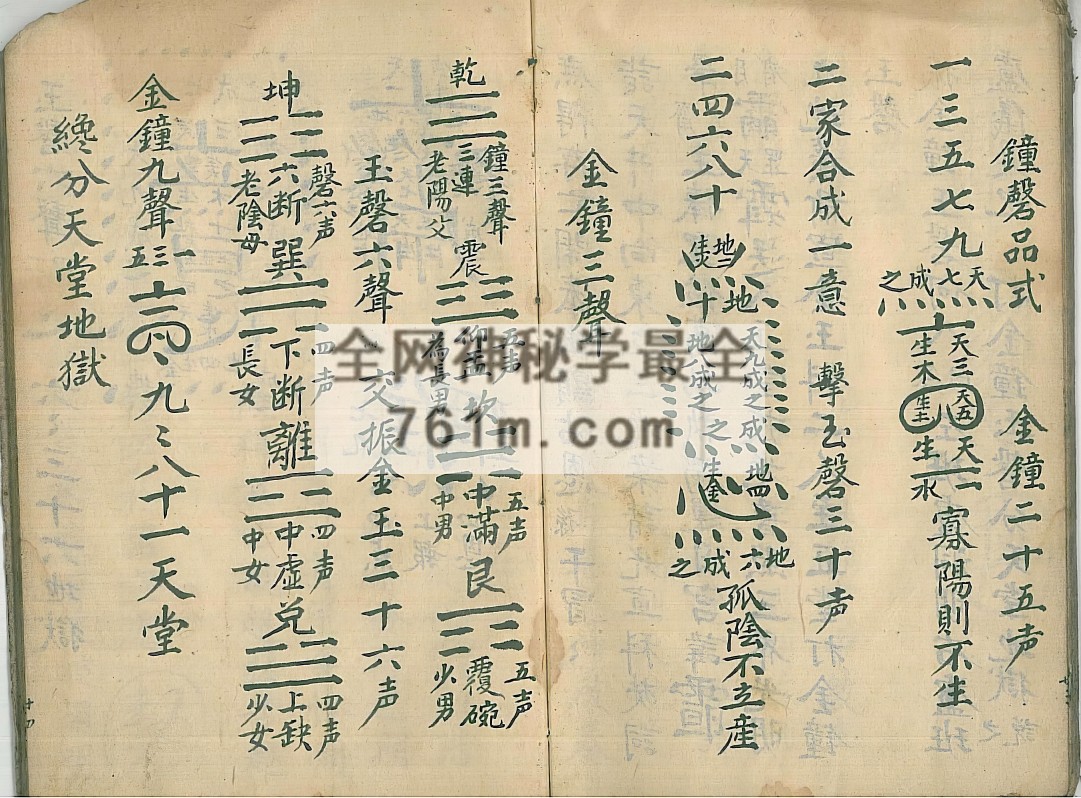 鐘磬品式 金鐘二十五声
一三五七九 天七成之 天三生木 天五生土 天一生水 寡陽則不生
二家合成一意 擊玉磬三十声
二四六八十 地二生火 地十成之 地八成之 天九成之 地四生金 地六成之 孤陰不立産
金鐘三聲
乾 三連 鐘三聲 老陽父 震 仰盂 五声 為長男 坎 中滿 五声 中男 艮 覆碗 五声 少男
玉磬六聲 交振金玉三十六声
坤 六断 磬六声 老陰母 巽 下断 四声 長女 離 中虚 四声 中女 兑 上缺 四声 少女
金鐘九聲 一三五 九〻八十一天堂
纔分天堂地獄
全网神秘学最全
761m.com